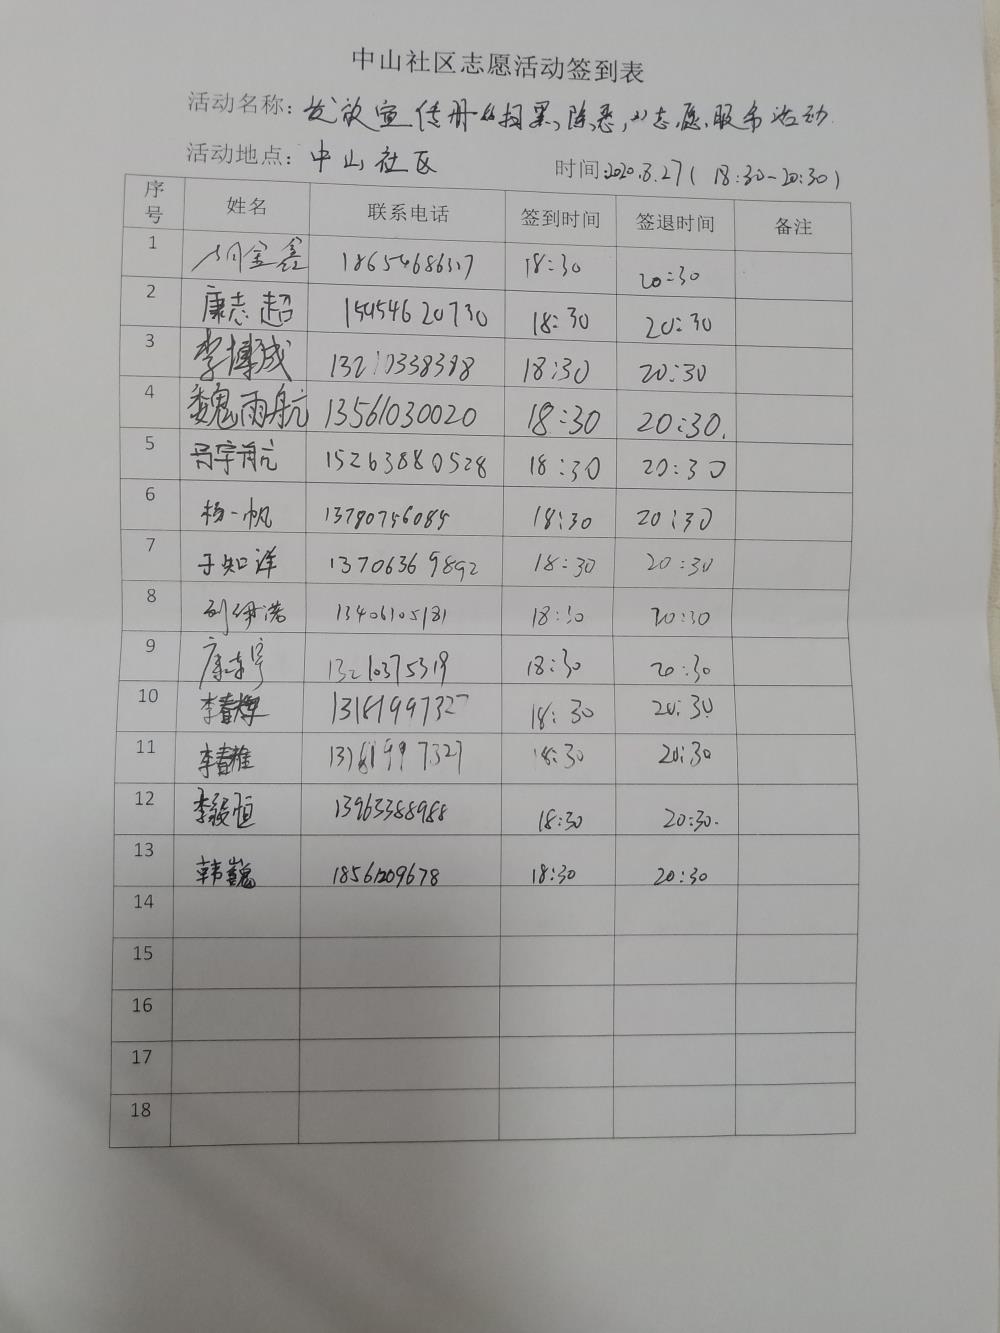 中山社区志愿活动签到表
活动名称：发放宣传册"扫黑除恶"志愿服务活动
活动地点：中山社区 时间：2020.8.27（18:30-20:30）
序号 姓名 联系电话 签到时间 签退时间 备注
1 金鑫 18:30 20:30
2 康志超 15054620730 18:30 20:30
3 李博成 13210338398 18:30 20:30
4 魏雨航 13561030020 18:30 20:30.
5 宇航 15263880528 18:30 20:30
6 杨一帆 13780756085 18:30 20:30
7 于知洋 13706369892 18:30 20:30
8 刘伊诺 13406105181 18:30 20:30
9 康 13210375319 18:30 20:30
10 李春辉 13181997327 18:30 20:30
11 李春雅 13181997327 18:30 20:30
12 李毅恒 13963388988 18:30 20:30.
13 韩巍 18561209678 18:30 20:30
14
15
16
17
18